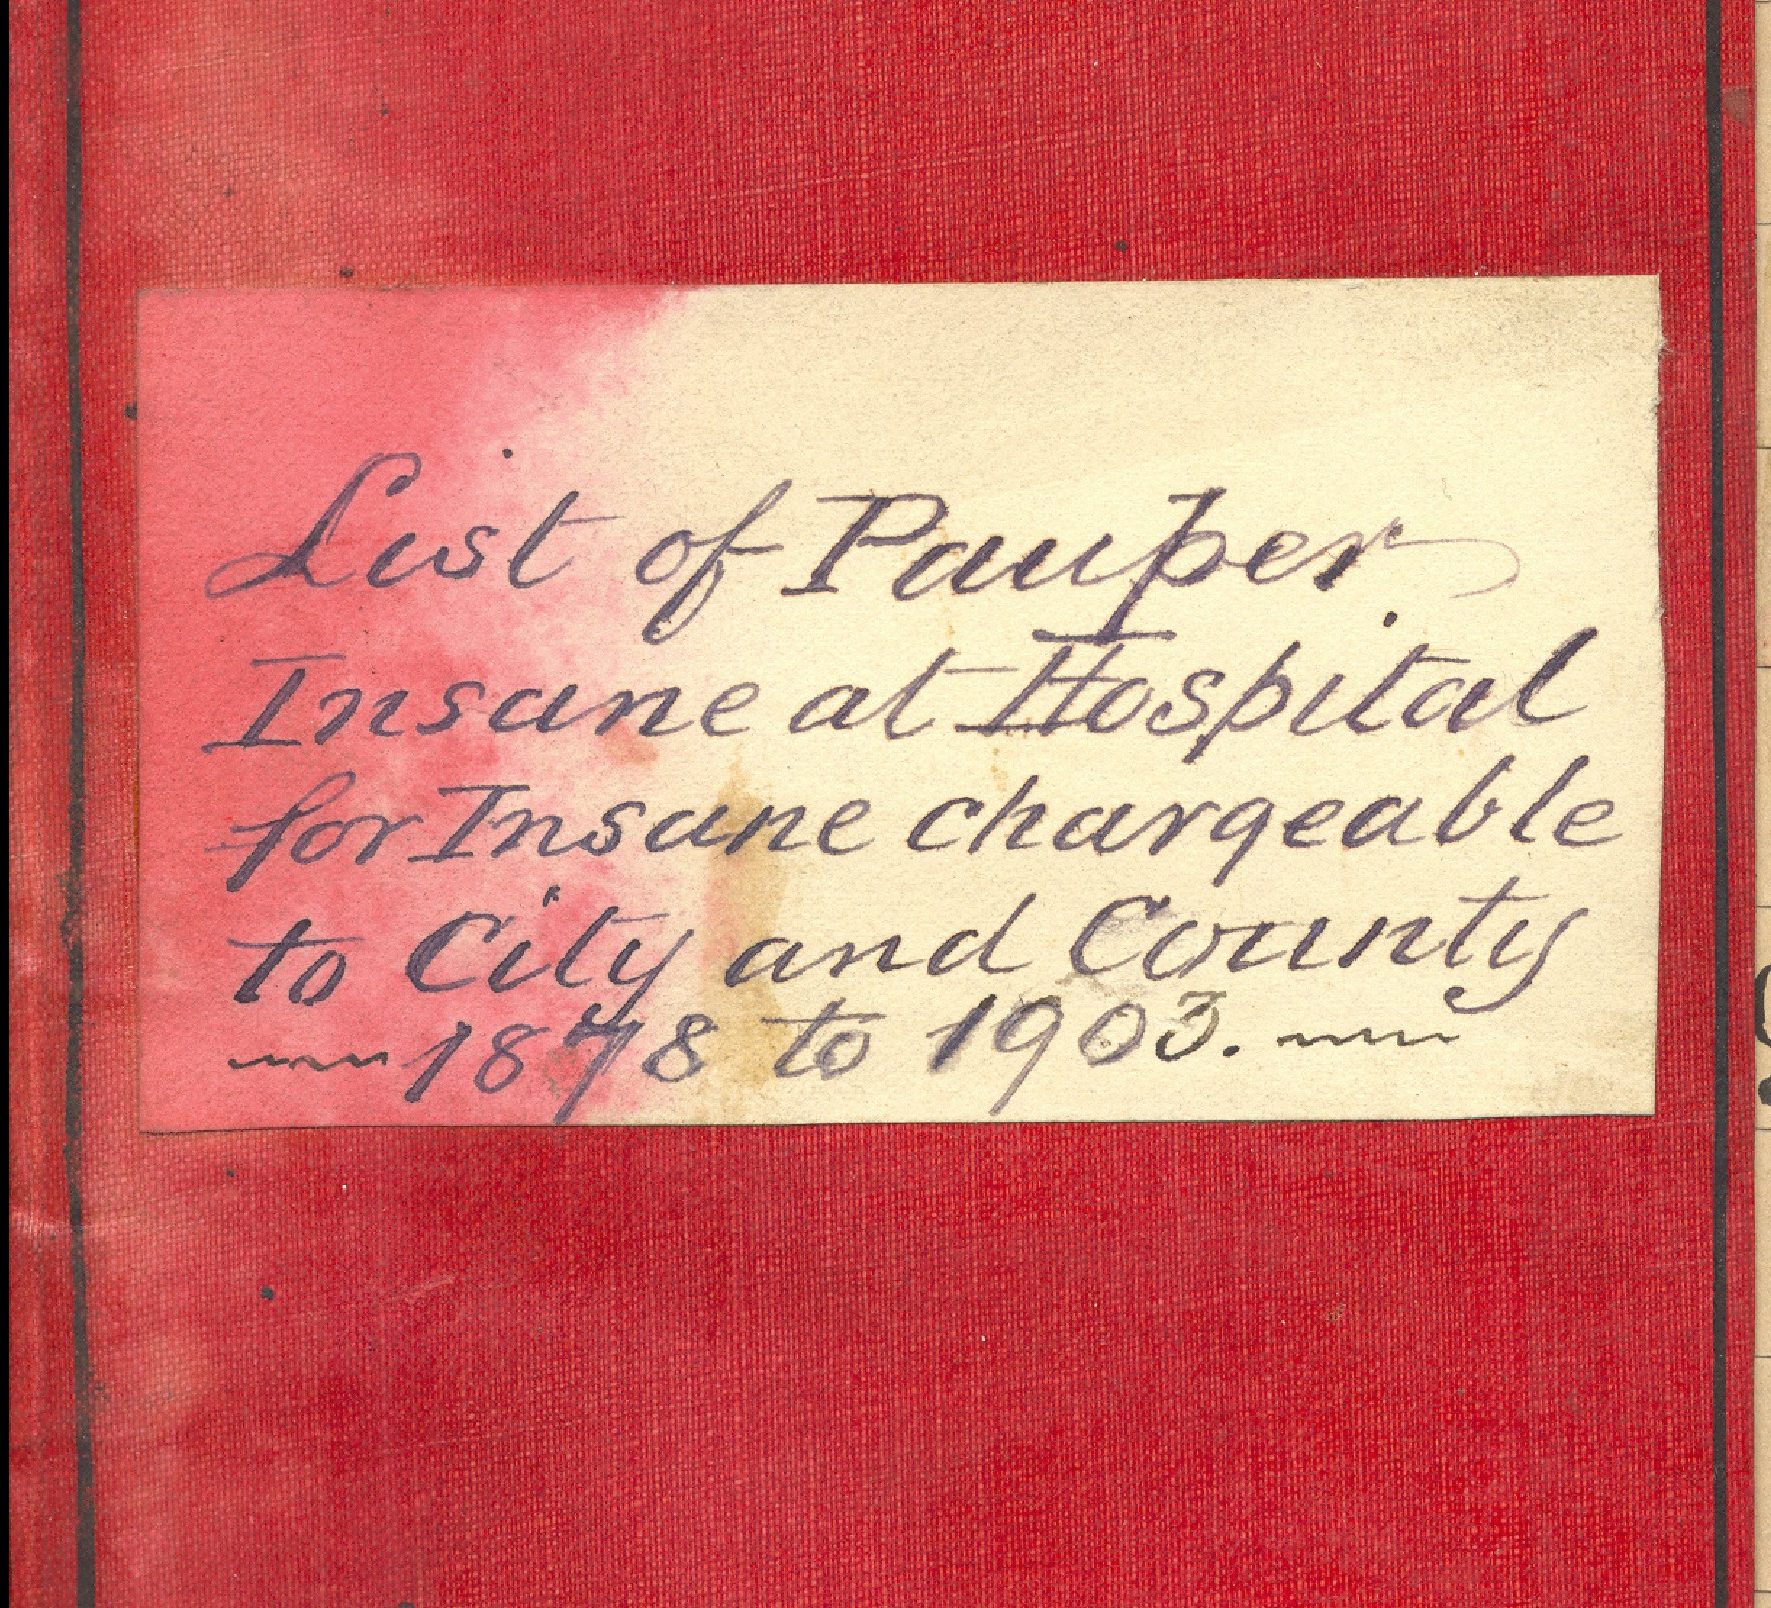 List of Pauper
Insane at Hospital
for Insane chargeable
to City and County
1878 to 1903.